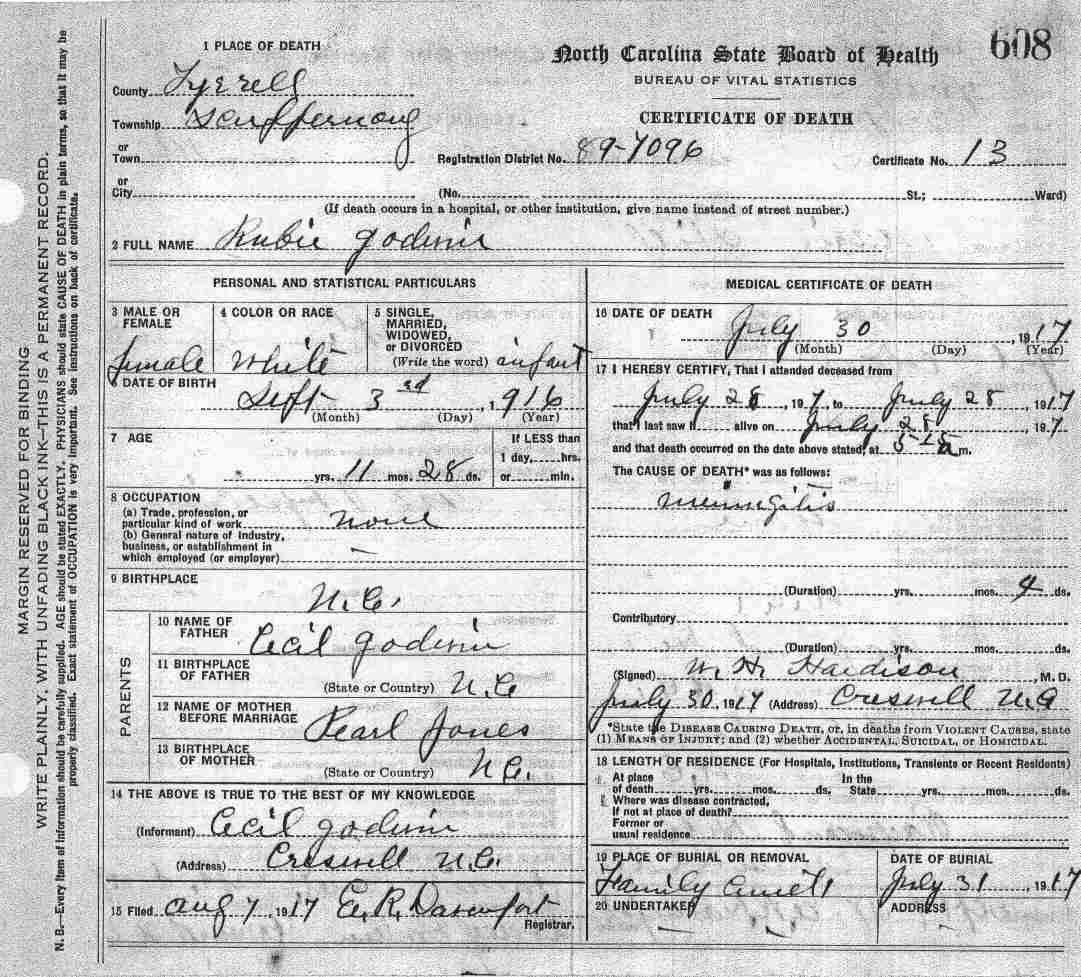 608
North Carolina State Board of Health
BUREAU OF VITAL STATISTICS
CERTIFICATE OF DEATH
1 PLACE OF DEATH
County Tyrrell
Township Scuppernong
or
Town
Registration District No. 89-7096 Certificate No. 13
or
City (No. St.; Ward)
(If death occurs in a hospital, or other institution, give name instead of street number.)
2 FULL NAME Rubie Godwin
PERSONAL AND STATISTICAL PARTICULARS
3 MALE OR FEMALE female
4 COLOR OR RACE White
5 SINGLE, MARRIED, WIDOWED, or DIVORCED (Write the word) infant
6 DATE OF BIRTH
Sept 3rd, 1916
(Month) (Day) (Year)
7 AGE
yrs. 11 mos. 28 ds.
If LESS than
1 day, hrs.
or min.
8 OCCUPATION
(a) Trade, profession, or
particular kind of work none
(b) General nature of Industry,
business, or establishment in
which employed (or employer) —
9 BIRTHPLACE
N.C.
PARENTS
10 NAME OF FATHER Cecil Godwin
11 BIRTHPLACE OF FATHER
(State or Country) N.C
12 NAME OF MOTHER BEFORE MARRIAGE Pearl Jones
13 BIRTHPLACE OF MOTHER
(State or Country) N.C.
14 THE ABOVE IS TRUE TO THE BEST OF MY KNOWLEDGE
(Informant) Cecil Godwin
(Address) Creswell N.C.
15 Filed Aug 7, 1917 E.R. Davenport
Registrar.
MEDICAL CERTIFICATE OF DEATH
16 DATE OF DEATH
July 30, 1917
(Month) (Day) (Year)
17 I HEREBY CERTIFY, That I attended deceased from
July 28, 1917, to July 28, 1917
that I last saw h alive on July 28, 1917
and that death occurred on the date above stated, at 5-15 a m.
The CAUSE OF DEATH* was as follows:
meningitis
(Duration) yrs. mos. 4 ds.
Contributory
(Duration) yrs. mos. ds.
(Signed) W. H. Hardison, M.D.
July 30, 1917 (Address) Creswell N.C
*State the DISEASE CAUSING DEATH, or, in deaths from VIOLENT CAUSES, state
(1) MEANS OF INJURY; and (2) whether ACCIDENTAL, SUICIDAL, or HOMICIDAL.
18 LENGTH OF RESIDENCE (For Hospitals, Institutions, Transients or Recent Residents)
At place of death yrs. mos. ds. In the State yrs. mos. ds.
Where was disease contracted,
If not at place of death?
Former or
usual residence
19 PLACE OF BURIAL OR REMOVAL
Family
DATE OF BURIAL
July 31, 1917
20 UNDERTAKER
ADDRESS
MARGIN RESERVED FOR BINDING
WRITE PLAINLY, WITH UNFADING BLACK INK—THIS IS A PERMANENT RECORD.
N. B.—Every item of information should be carefully supplied. AGE should be stated EXACTLY. PHYSICIANS should state CAUSE OF DEATH in plain terms, so that it may be
properly classified. Exact statement of OCCUPATION is very important. See instructions on back of certificate.